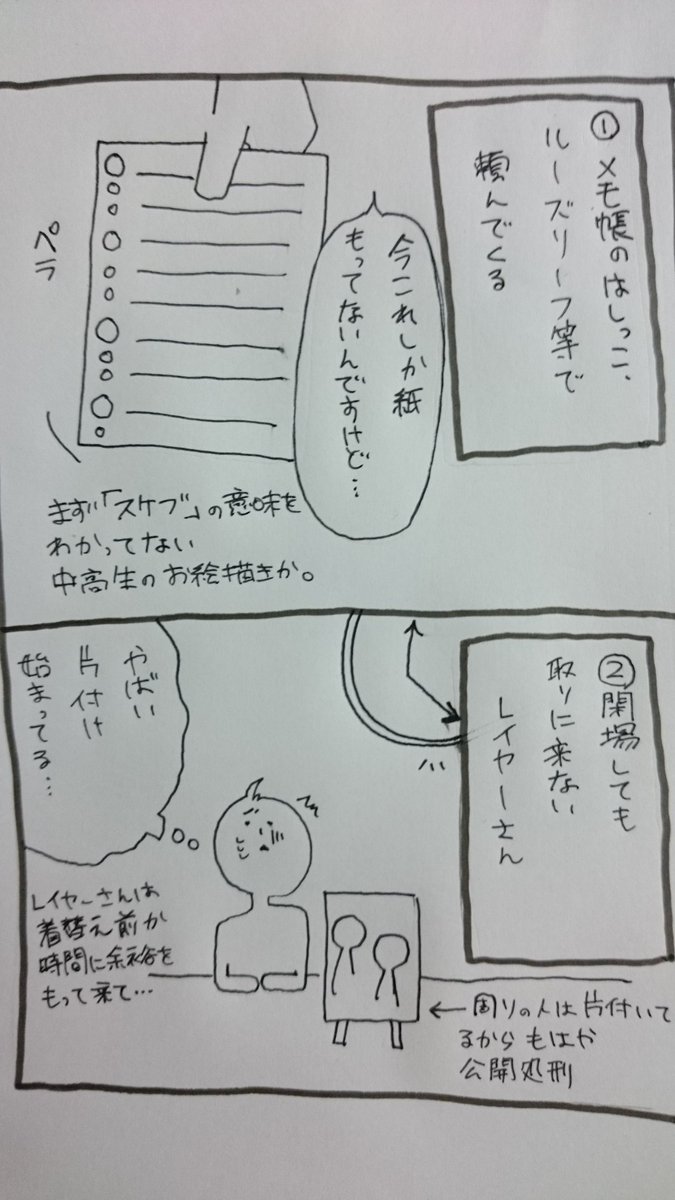 ①メモ帳のはしっこ、
ルーズリーフ等で
頼んでくる
今これしか紙
もってないんですけど…
ペラ
まず「スケブ」の意味を
わかってない
中高生のお絵描きか。
②閉場しても
取りに来ない
レイヤーさん
やばい
片付け
始まってる…
レイヤーさんは
着替え前か
時間に余裕を
もって来て…
←周りの人は片付いて
るから もはや
公開処刑